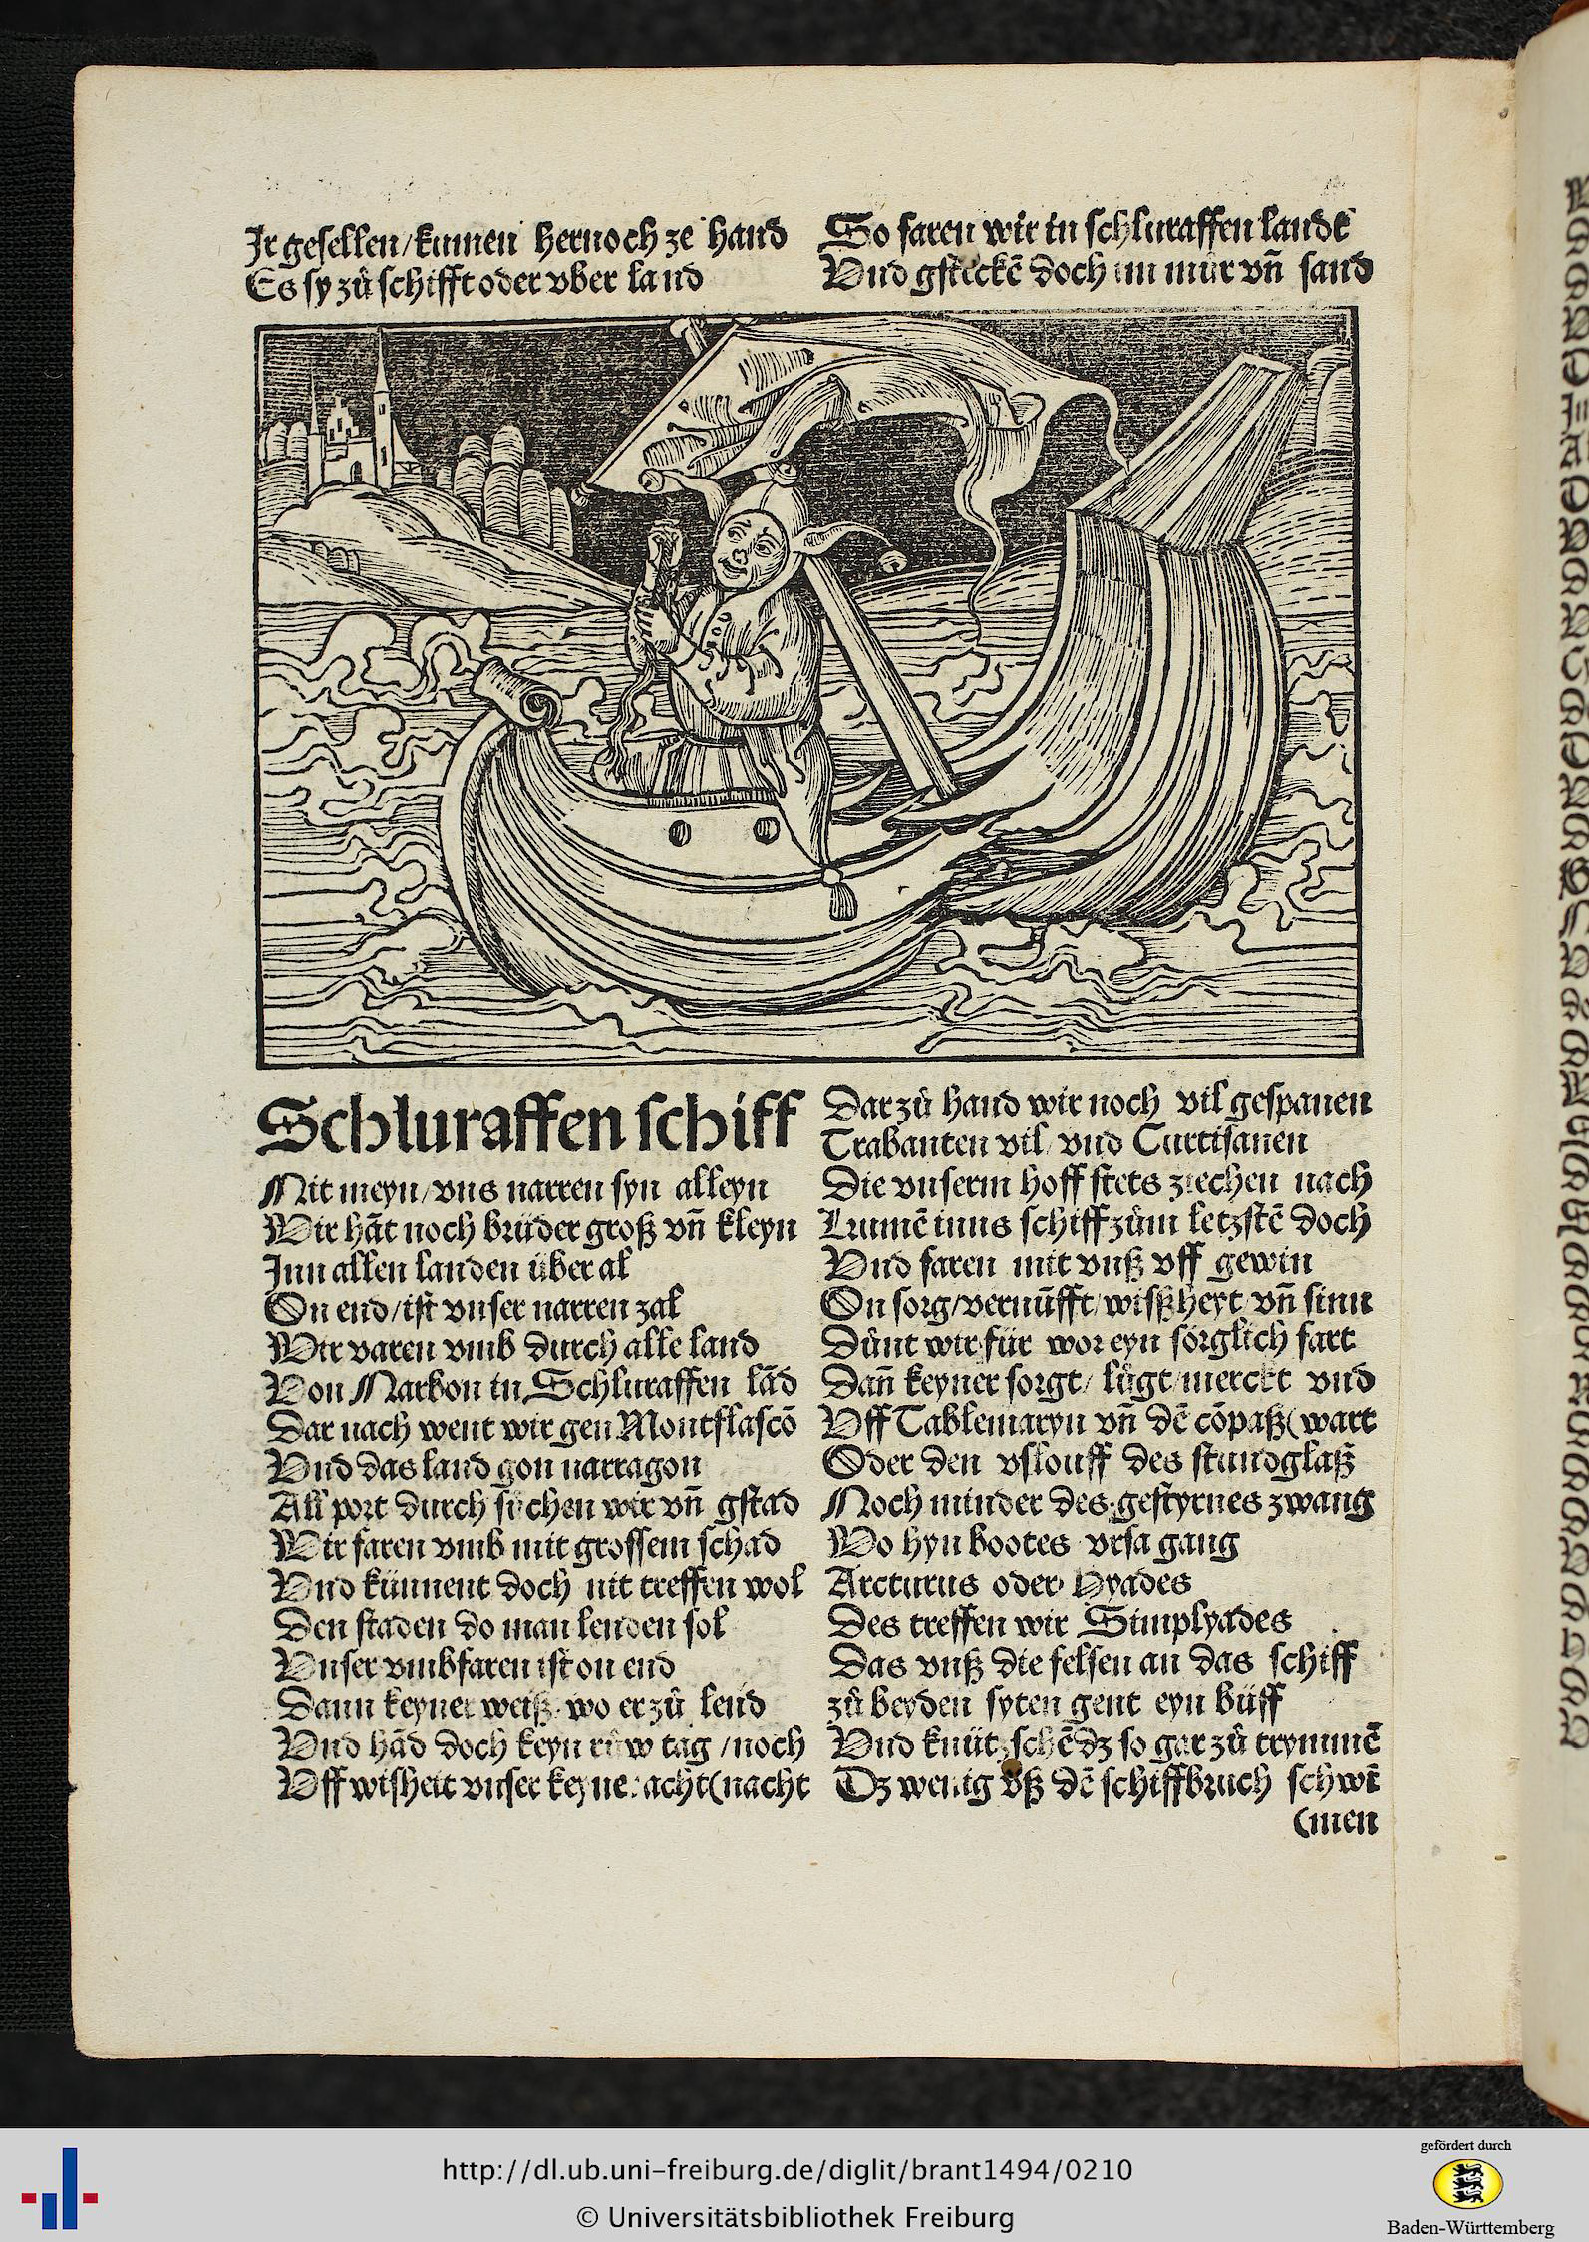 Ir gesellen/kumen hernoch ze hand
Es sy zů schifft oder vber land
So faren wir in schluraffen landt
Vnd gsteckē doch im můr vn̄ sand
Schluraffen schiff
Nit meyn/vns narren syn alleyn
Wir hāt noch brüder groß vn̄ kleyn
Inn allen landen über al
On end/ist vnser narren zal
Wir varen vmb durch alle land
Von Narbon in Schluraffen lād
Dar nach went wir gen Montflascō
Vnd das land gon narragon
All port durch sůchen wir vn̄ gstad
Wir faren vmb mit grossem schad
Vnd künnent doch nit treffen wol
Den staden do man lenden sol
Vnser vmbfaren ist on end
Dann keyner weiß, wo er zů lend
Vnd hād doch keyn růw tag/noch
Vff wisheit vnser keyner acht(nacht
Dar zů hand wir noch vil gespanen
Trabanten vil/vnd Curtisanen
Die vnserm hoff stets ziechen nach
Kumē inns schiff zům letzstē doch
Vnd faren mit vnß vff gewin
On sorg/vernūfft/wißheyt/vn̄ sinn
Důnt wir für wor eyn sörglich fart
Dan̄ keyner sorgt/lůgt/merckt vnd
Vff Tablemaryn vn̄ dē cōpaß(wart
Oder den vslouff des stundglaß
Noch minder des gestyrnes zwang
Wo hyn bootes vrsa gang
Arcturus oder Hyades
Des treffen wir Simplyades
Das vnß die felsen an das schiff
zů beyden syten gent eyn büff
Vnd knützschēdz so gar zů trymmē
Dz wenig vß dē schiffbruch schwī
(men
http://dl.ub.uni-freiburg.de/diglit/brant1494/0210
© Universitätsbibliothek Freiburg
gefördert durch
Baden-Württemberg